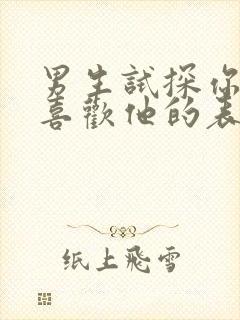 男生試探你
喜歡他的表
纸上飛雪